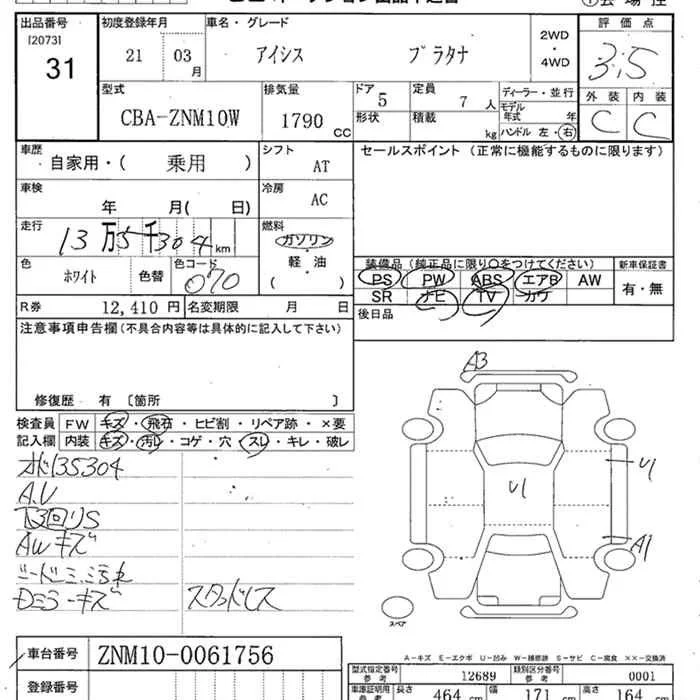 出品番号 初度登録年月 車名・グレード 評価点
[2073]
31 21 03月 アイシス プラタナ 2WD・4WD 3.5
外装 内装
C C
型式 排気量 ドア 定員 ディーラー・並行
CBA-ZNM10W 1790cc 5 7人 モデル年式 年
形状 積載 kg ハンドル 左・右
車歴 シフト セールスポイント (正常に機能するものに限ります)
自家用・( 乗用 ) AT
車検 冷房
年 月( 日) AC
走行 燃料
13万5千304km ガソリン
軽・油
( )
色 色替 色コード
ホワイト 070
装備品 (純正品に限り○をつけてください) 新車保証書
PS PW ABS エアB AW 有・無
SR ナビ TV カワ
後日品
R券 12,410円 名変期限 月 日
注意事項申告欄(不具合内容等は具体的に記入して下さい)
修復歴 有 〔箇所 〕
検査員 FW キズ・飛石・ヒビ割・リペア跡・×要
記入欄 内装 キズ・汚レ・コゲ・穴・スレ・キレ・破レ
A3
U1
U1
A1
スペア
オド135304
A.V
下回りS
AWキズ
シートシミ、汚れ
Dミラーキズ スタッドレス
A-キズ E-エクボ U-凹み W-補修跡 S-サビ C-腐食 ××-交換済
車台番号 ZNM10-0061756
登録番号
型式指定番号 参考 12689 類別区分番号 参考 0001
車庫証明用 参考 長さ 464cm 幅 171cm 高さ 164cm